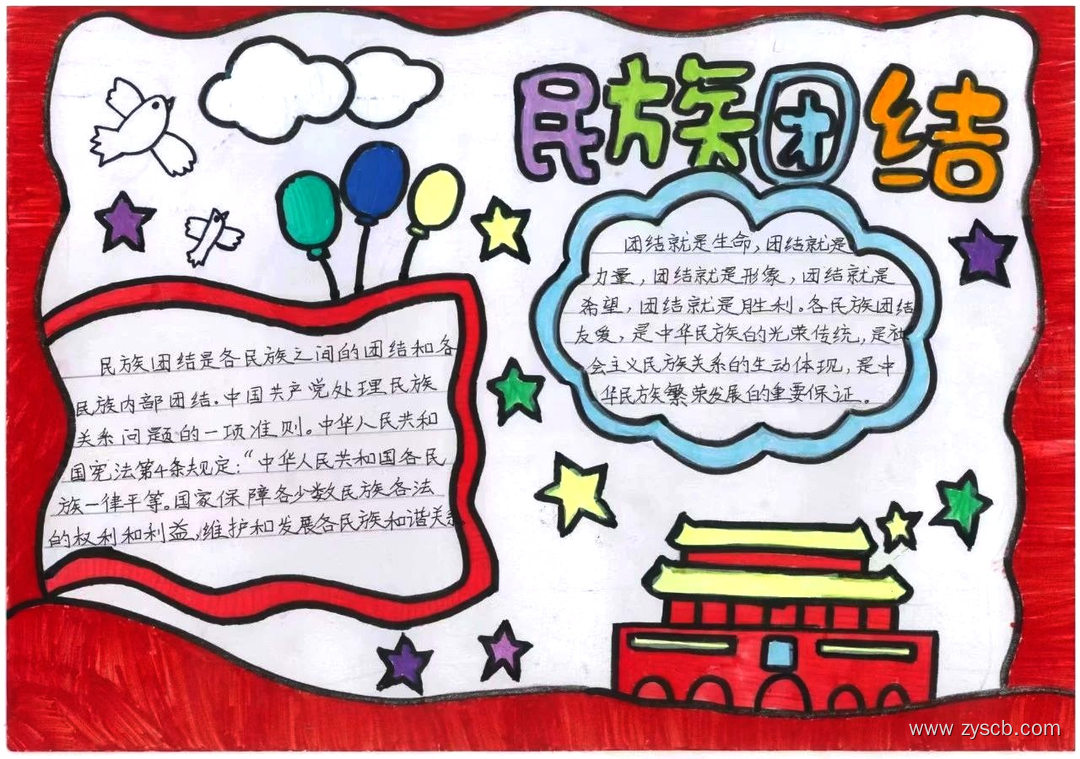 民族团结
团结就是生命，团结就是
力量，团结就是形象，团结就是
希望，团结就是胜利。各民族团结
友爱，是中华民族的光荣传统，是社
会主义民族关系的生动体现，是中
华民族繁荣发展的重要保证。
民族团结是各民族之间的团结和各
民族内部团结。中国共产党处理民族
关系问题的一项准则。中华人民共和
国宪法第4条规定："中华人民共和国各民
族一律平等。国家保障各少数民族各法
的权利和利益，维护和发展各民族和谐关系
www.zyscb.com